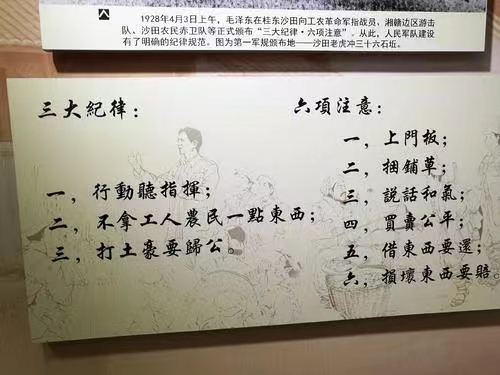 1928年4月3日上午，毛泽东在桂东沙田向工农革命军指战员、湘赣边区游击
队、沙田农民赤卫队等正式颁布“三大纪律·六项注意”。从此，人民军队建设
有了明确的纪律规范。图为第一军规颁布地——沙田老虎冲三十六石坵。
三大紀律：
一，行動聽指揮；
二，不拿工人農民一點東西；
三，打土豪要歸公。
六項注意：
一，上門板；
二，捆鋪草；
三，説話和氣；
四，買賣公平；
五，借東西要還；
六，損壞東西要賠。